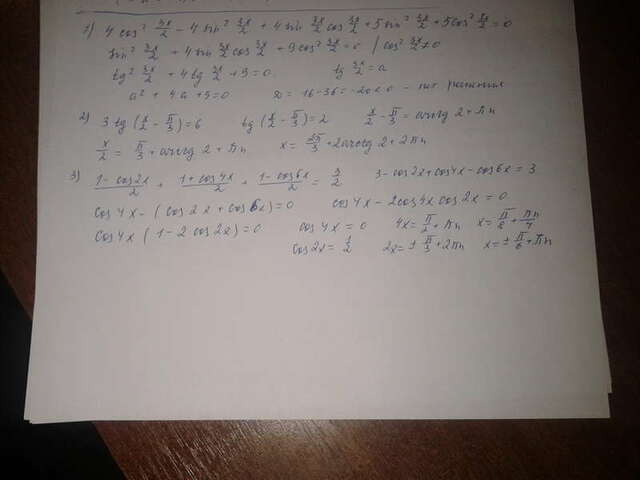 1) 4 cos² 3x/2 - 4 sin² 3x/2 + 4 sin 3x/2 cos 3x/2 + 5 sin² 3x/2 + 5 cos² 3x/2 = 0
sin² 3x/2 + 4 sin 3x/2 cos 3x/2 + 9 cos² 3x/2 = 0 | cos² 3x/2 ≠ 0
tg² 3x/2 + 4 tg 3x/2 + 9 = 0 tg 3x/2 = a
a² + 4a + 9 = 0 D = 16 - 36 = -20 < 0 - нет решения
2) 3 tg (x/2 - π/3) = 6 tg (x/2 - π/3) = 2 x/2 - π/3 = arctg 2 + πn
x/2 = π/3 + arctg 2 + πn x = 2π/3 + 2 arctg 2 + 2πn
3) (1 - cos2x)/2 + (1 + cos4x)/2 + (1 - cos6x)/2 = 3/2 3 - cos2x + cos4x - cos6x = 3
cos4x - (cos2x + cos6x) = 0 cos4x - 2cos4x cos2x = 0
cos4x (1 - 2cos2x) = 0 cos4x = 0 4x = π/2 + πn x = π/8 + πn/4
cos2x = 1/2 2x = ± π/3 + 2πn x = ± π/6 + πn